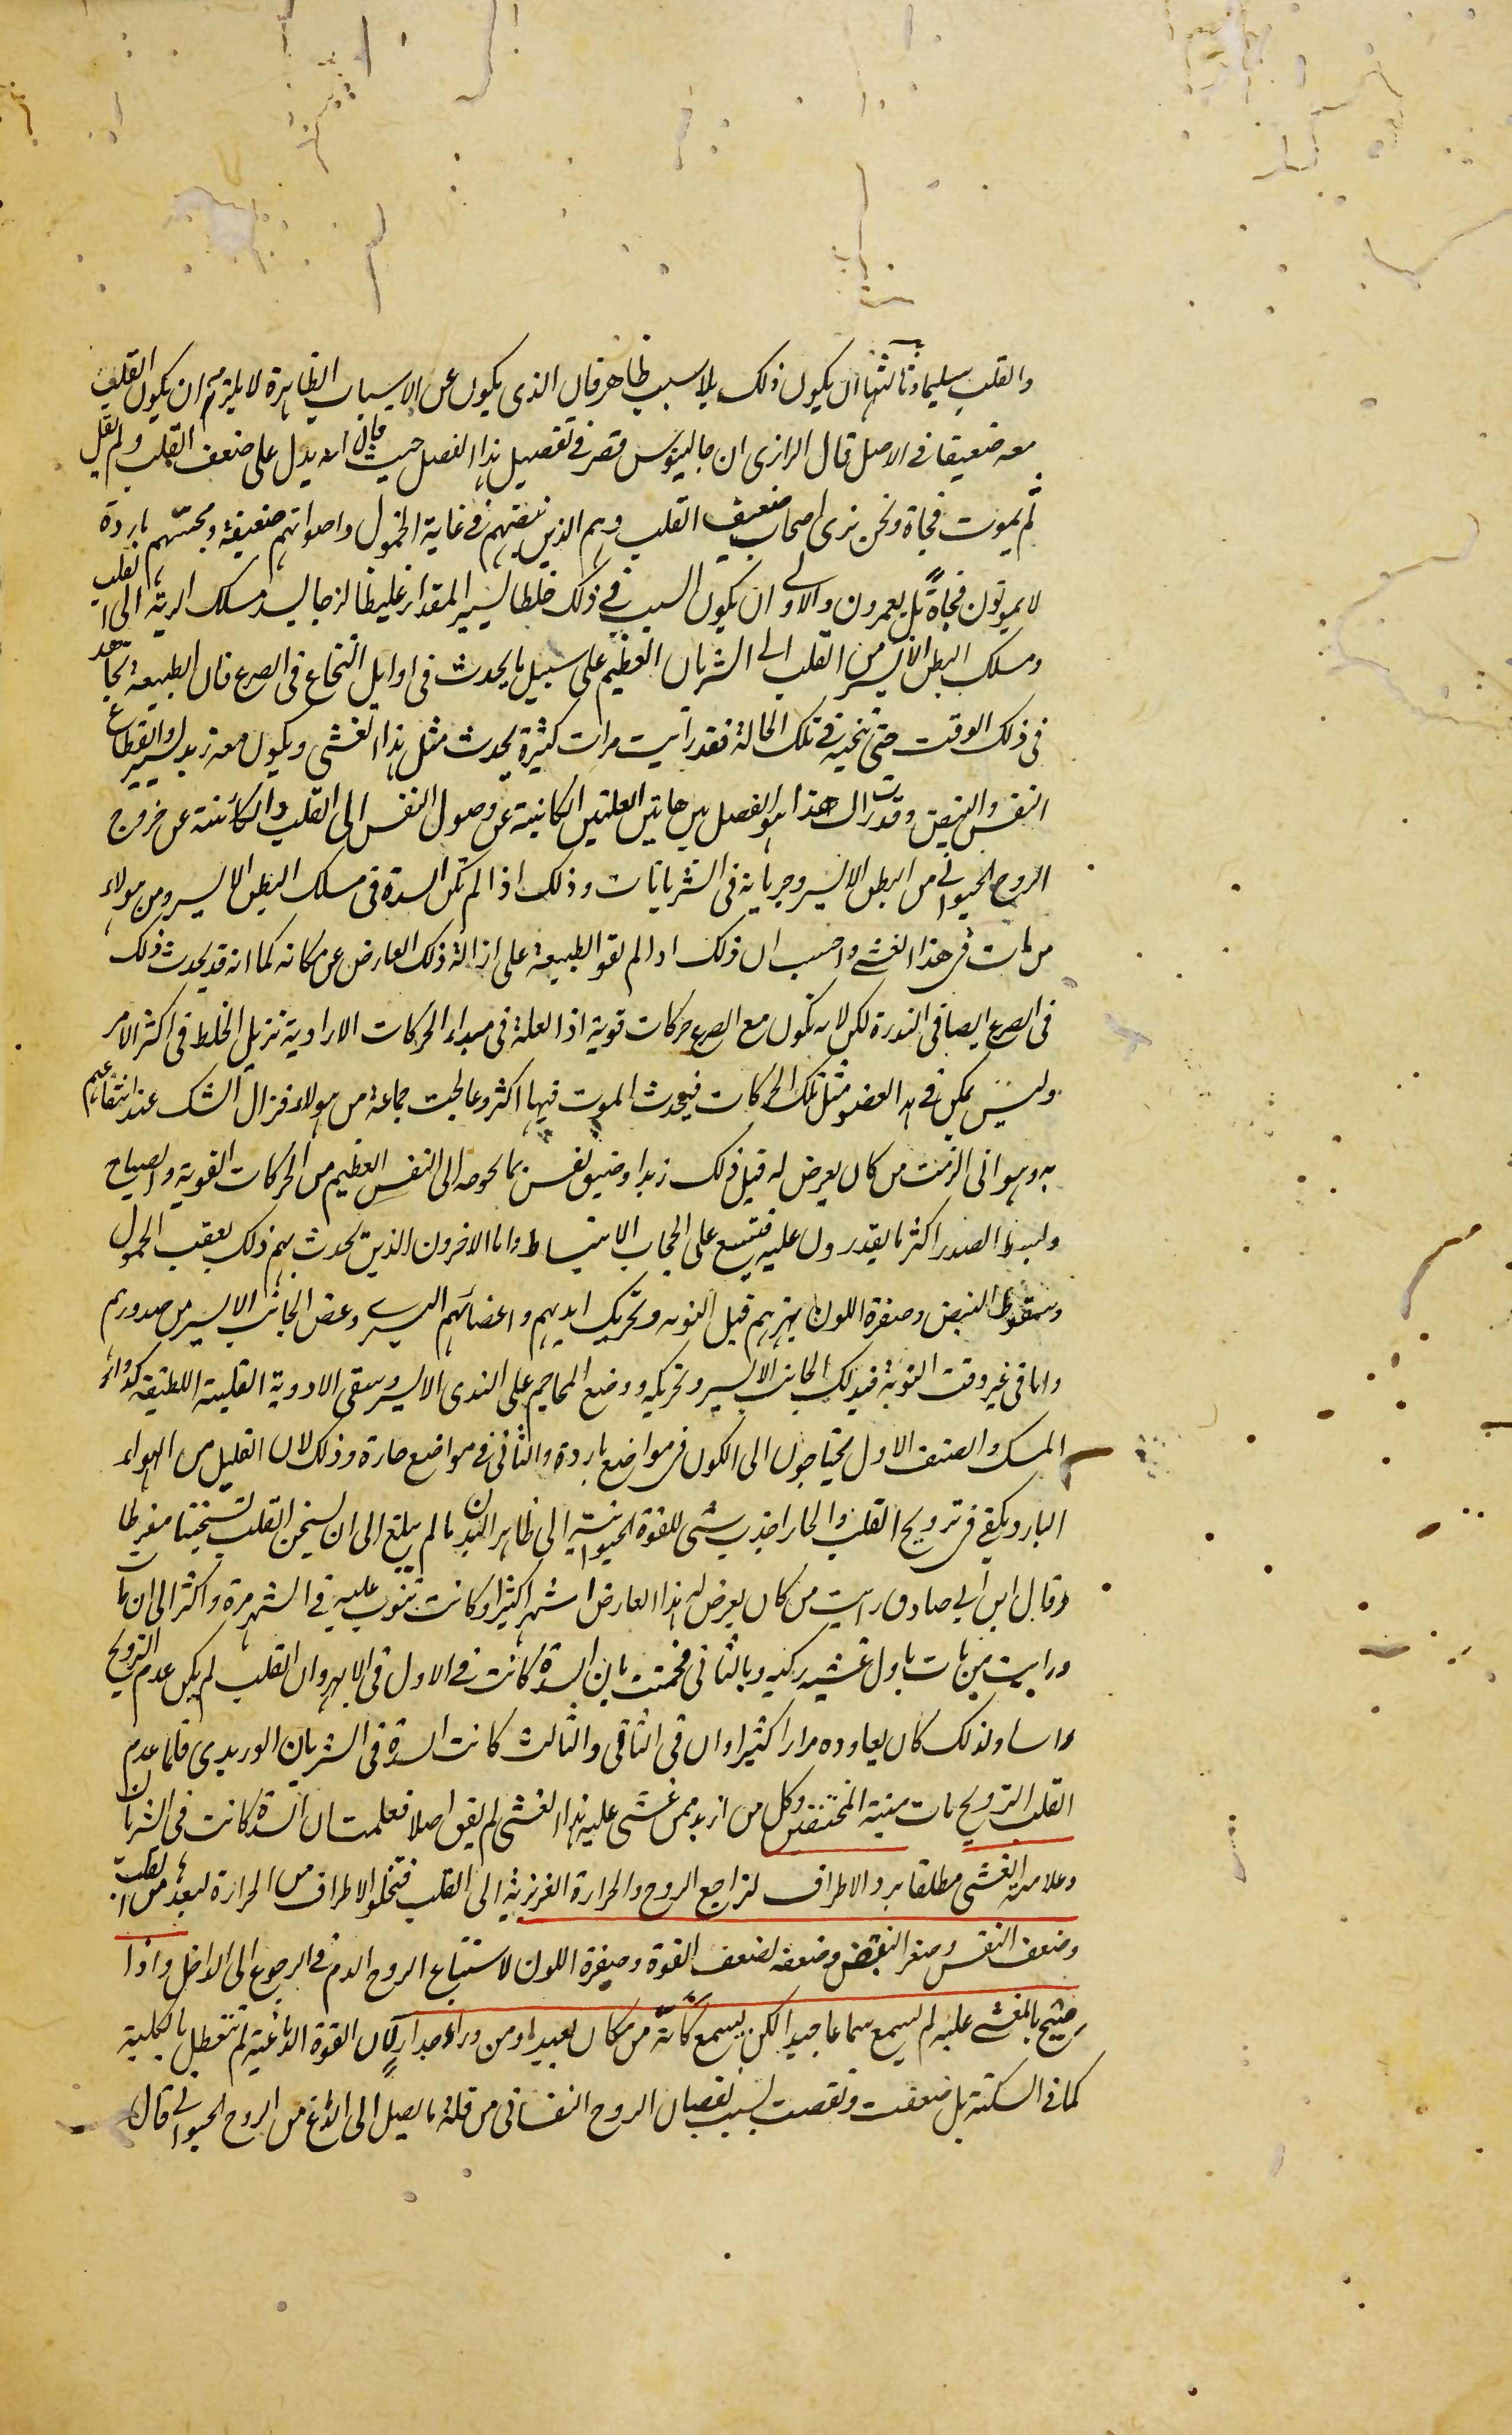 والقلب سليما وثالثها ان يكون ذلك بلا سبب ظاهر فان الذى يكون عن الاسباب الظاهرة لا يلزم ان يكون القلب
معه ضعيفا فى الاصل قال الرازى ان جالينوس قصر فى تفصيل هذا الفصل حيث قال انه يدل على ضعف القلب ولم يقل
لم يموت فجاة ونحن نرى اصحاب ضعف القلب وهم الذين نبضهم فى غاية الخمول واصواتهم ضعيفة ومجستهم باردة
لا يموتون فجاة بل يعمرون والاولى ان يكون السبب فى ذلك خلطا يسير المقدار غليظا لزجا يسد مسلك الرية الى القلب
ومسلك البطن الايسر من القلب الى الشريان العظيم على سبيل ما يحدث فى اوايل النخاع فى الصرع فان الطبيعة تجاهد
فى ذلك الوقت حتى تنحيه فى تلك الحالة فقد رأيت مرات كثيرة يحدث مثل هذا الغشى ويكون معه زبد يسير وانقطاع
النفس والنبض وقدرت ان هذا هو الفصل بين هاتين العلتين الكاينة عن وصول النفس الى القلب والكائنة عن خروج
الروح الحيوانى من البطن الايسر وجريانه فى الشريانات وذلك اذا لم تكن السدة فى مسلك البطن الايسر ومن هولاء
من مات فى هذا الغشى واحسب ان ذلك اذا لم تقو الطبيعة على ازالة ذلك العارض عن مكانه كما انه قد يحدث ذلك
فى الصرع ايضا فى الندرة لكن لانه تكون مع الصرع حركات قوية اذ العلة فى مبداء الحركات الارادية تزيل الخلط فى اكثر الامر
وليس يمكن فى هذا العضو مثل تلك الحركات فيحدث الموت فيها اكثر وعالجت جماعة من هولاء فزال الشك عند انتفاعهم
به وهو انى الزمت من كان يعرض له قبل ذلك زبد او ضيق نفس بما يحوجه الى النفس العظيم من الحركات القوية والصياح
وبسط الصدر اكثر ما يقدرون عليه فتسع على الحجاب الانبساط واما الاخرون الذين يحدث بهم ذلك بعقب الخمول
وسقوط النبض وصفرة اللون بهزهم قبل النوبة وتحريك ايديهم واعضائهم اليسرى وعض الجانب الايسر من صدورهم
واما فى غير وقت النوبة فبدلك الجانب الايسر وتحريكه ووضع المحاجم على الثدى الايسر وسقى الادوية القلبية اللطيفة كدواء
المسك والصنف الاول يحتاجون الى الكون فى مواضع باردة والثانى فى مواضع حارة وذلك لان القليل من الهواء
البارد يكفى فى ترويح القلب والحار اجذب شى للقوة الحيوانية الى ظاهر البدن ما لم يبلغ الى ان يسخن القلب تسخينا مفرطا
وقال ابن ابى صادق رايت من كان يعرض له هذا العارض اشهرا كثيرا وكانت تنوب عليه فى الشهر مرة واكثر الى ان مات
ورايت من مات باول غشية ركبه وبالثانى فخمنت بان السدة كانت فى الاول فى الابهر وان القلب لم يكن عدم الترويح
راسا ولذلك كان يعاوده مرارا كثيرا وان فى الثانى والثالث كانت السدة فى الشريان الوريدى فلما عدم
القلب الترويح مات ميتة المختنقين وكل من ازبد ممن غشى عليه هذا الغشى لم يفق اصلا فعلمت ان السدة كانت فى الشريان
وعلامة الغشى مطلقا برد الاطراف لتراجع الروح والحرارة الغريزية الى القلب فتخلوا الاطراف من الحرارة لبعدها من القلب
وضعف النفس وصغر النبض وضعفه لضعف القوة وصفرة اللون لاستتباع الروح الدم فى الرجوع الى الداخل واذا
صيح بالمغشى عليه لم يسمع سماعا جيدا لكن يسمع كانه من مكان بعيد او من وراء جدار لان القوة الدماغية لم تتعطل بالكلية
كما فى السكتة بل ضعفت ونقصت بسبب نقصان الروح النفسانى من قلة ما يصل الى الدماغ من الروح الحيوانى قال